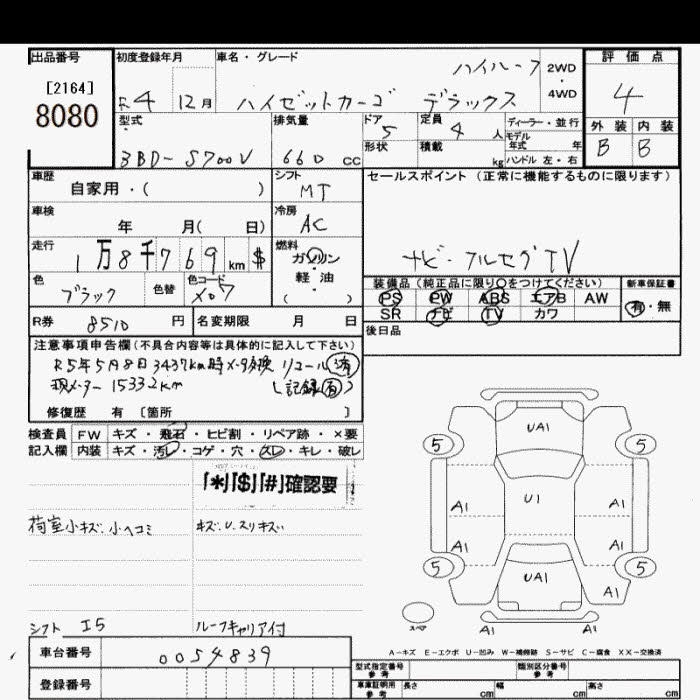 出品番号 初度登録年月 車名・グレード 評価点
[2164] ハイルーフ 2WD・4WD
8080 R4 12月 ハイゼットカーゴ デラックス 4
型式 排気量 ドア 定員 ディーラー・並行 外装 内装
3BD-S700V 660 CC 5 4人 モデル年式 年 B B
形状 積載 kg ハンドル 左・右
車歴 シフト セールスポイント (正常に機能するものに限ります)
自家用・( ) MT
車検 冷房
年 月( 日) AC
走行 燃料 ナビ・フルセグTV
1万8千769km $ ガソリン・軽油
色 色替 色コード ( ) 装備品 (純正品に限り○をつけてください) 新車保証書
ブラック X07 PS PW ABS エアB AW 有・無
R券 8510円 名変期限 月 日 SR ナビ TV カワ
後日品
注意事項申告欄 (不具合内容等は具体的に記入して下さい)
R5年5月8日 3437km時メータ交換 リコール済
現メーター 15332km (記録有)
修復歴 有 [箇所 ]
検査員 FW キズ・飛石・ヒビ割・リペア跡・×要
記入欄 内装 キズ・汚レ・コゲ・穴・スレ・キレ・破レ
「*」「$」「#」確認要
荷室小キズ.小ヘコミ キズ.U.スリキズい
シフト I5 ルーフキャリア付
UA1
5 5
A1 U1 A1
A1 A1
5 5
UA1
スペア A1 A1
A−キズ E−エクボ U−凹み W−補修跡 S−サビ C−腐食 XX−交換済
車台番号 0054839
登録番号
型式指定番号 参考 類別区分番号 参考
車庫証明用 参考 長さ cm 幅 cm 高さ cm